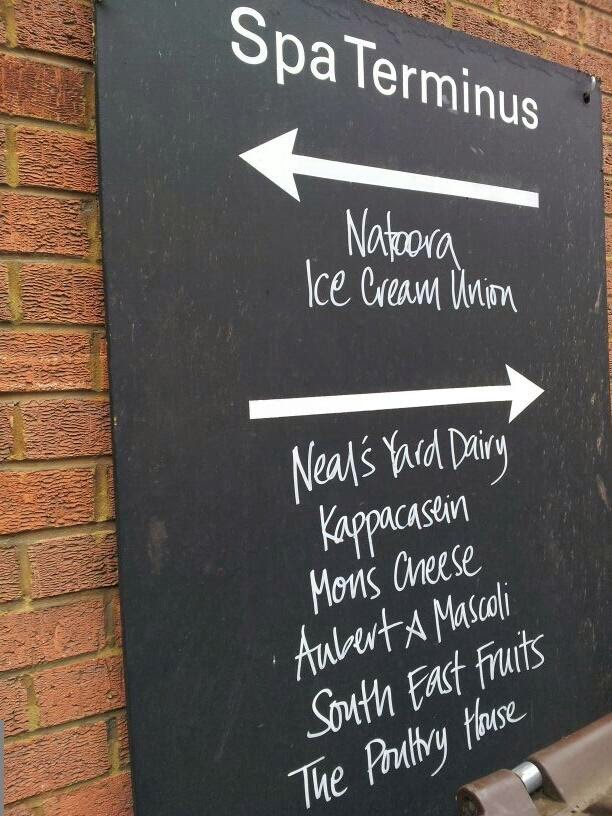 Spa Terminus
Natoora
Ice Cream Union
Neal's Yard Dairy
Kappacasein
Mons Cheese
Aubert & Mascoli
South East Fruits
The Poultry House